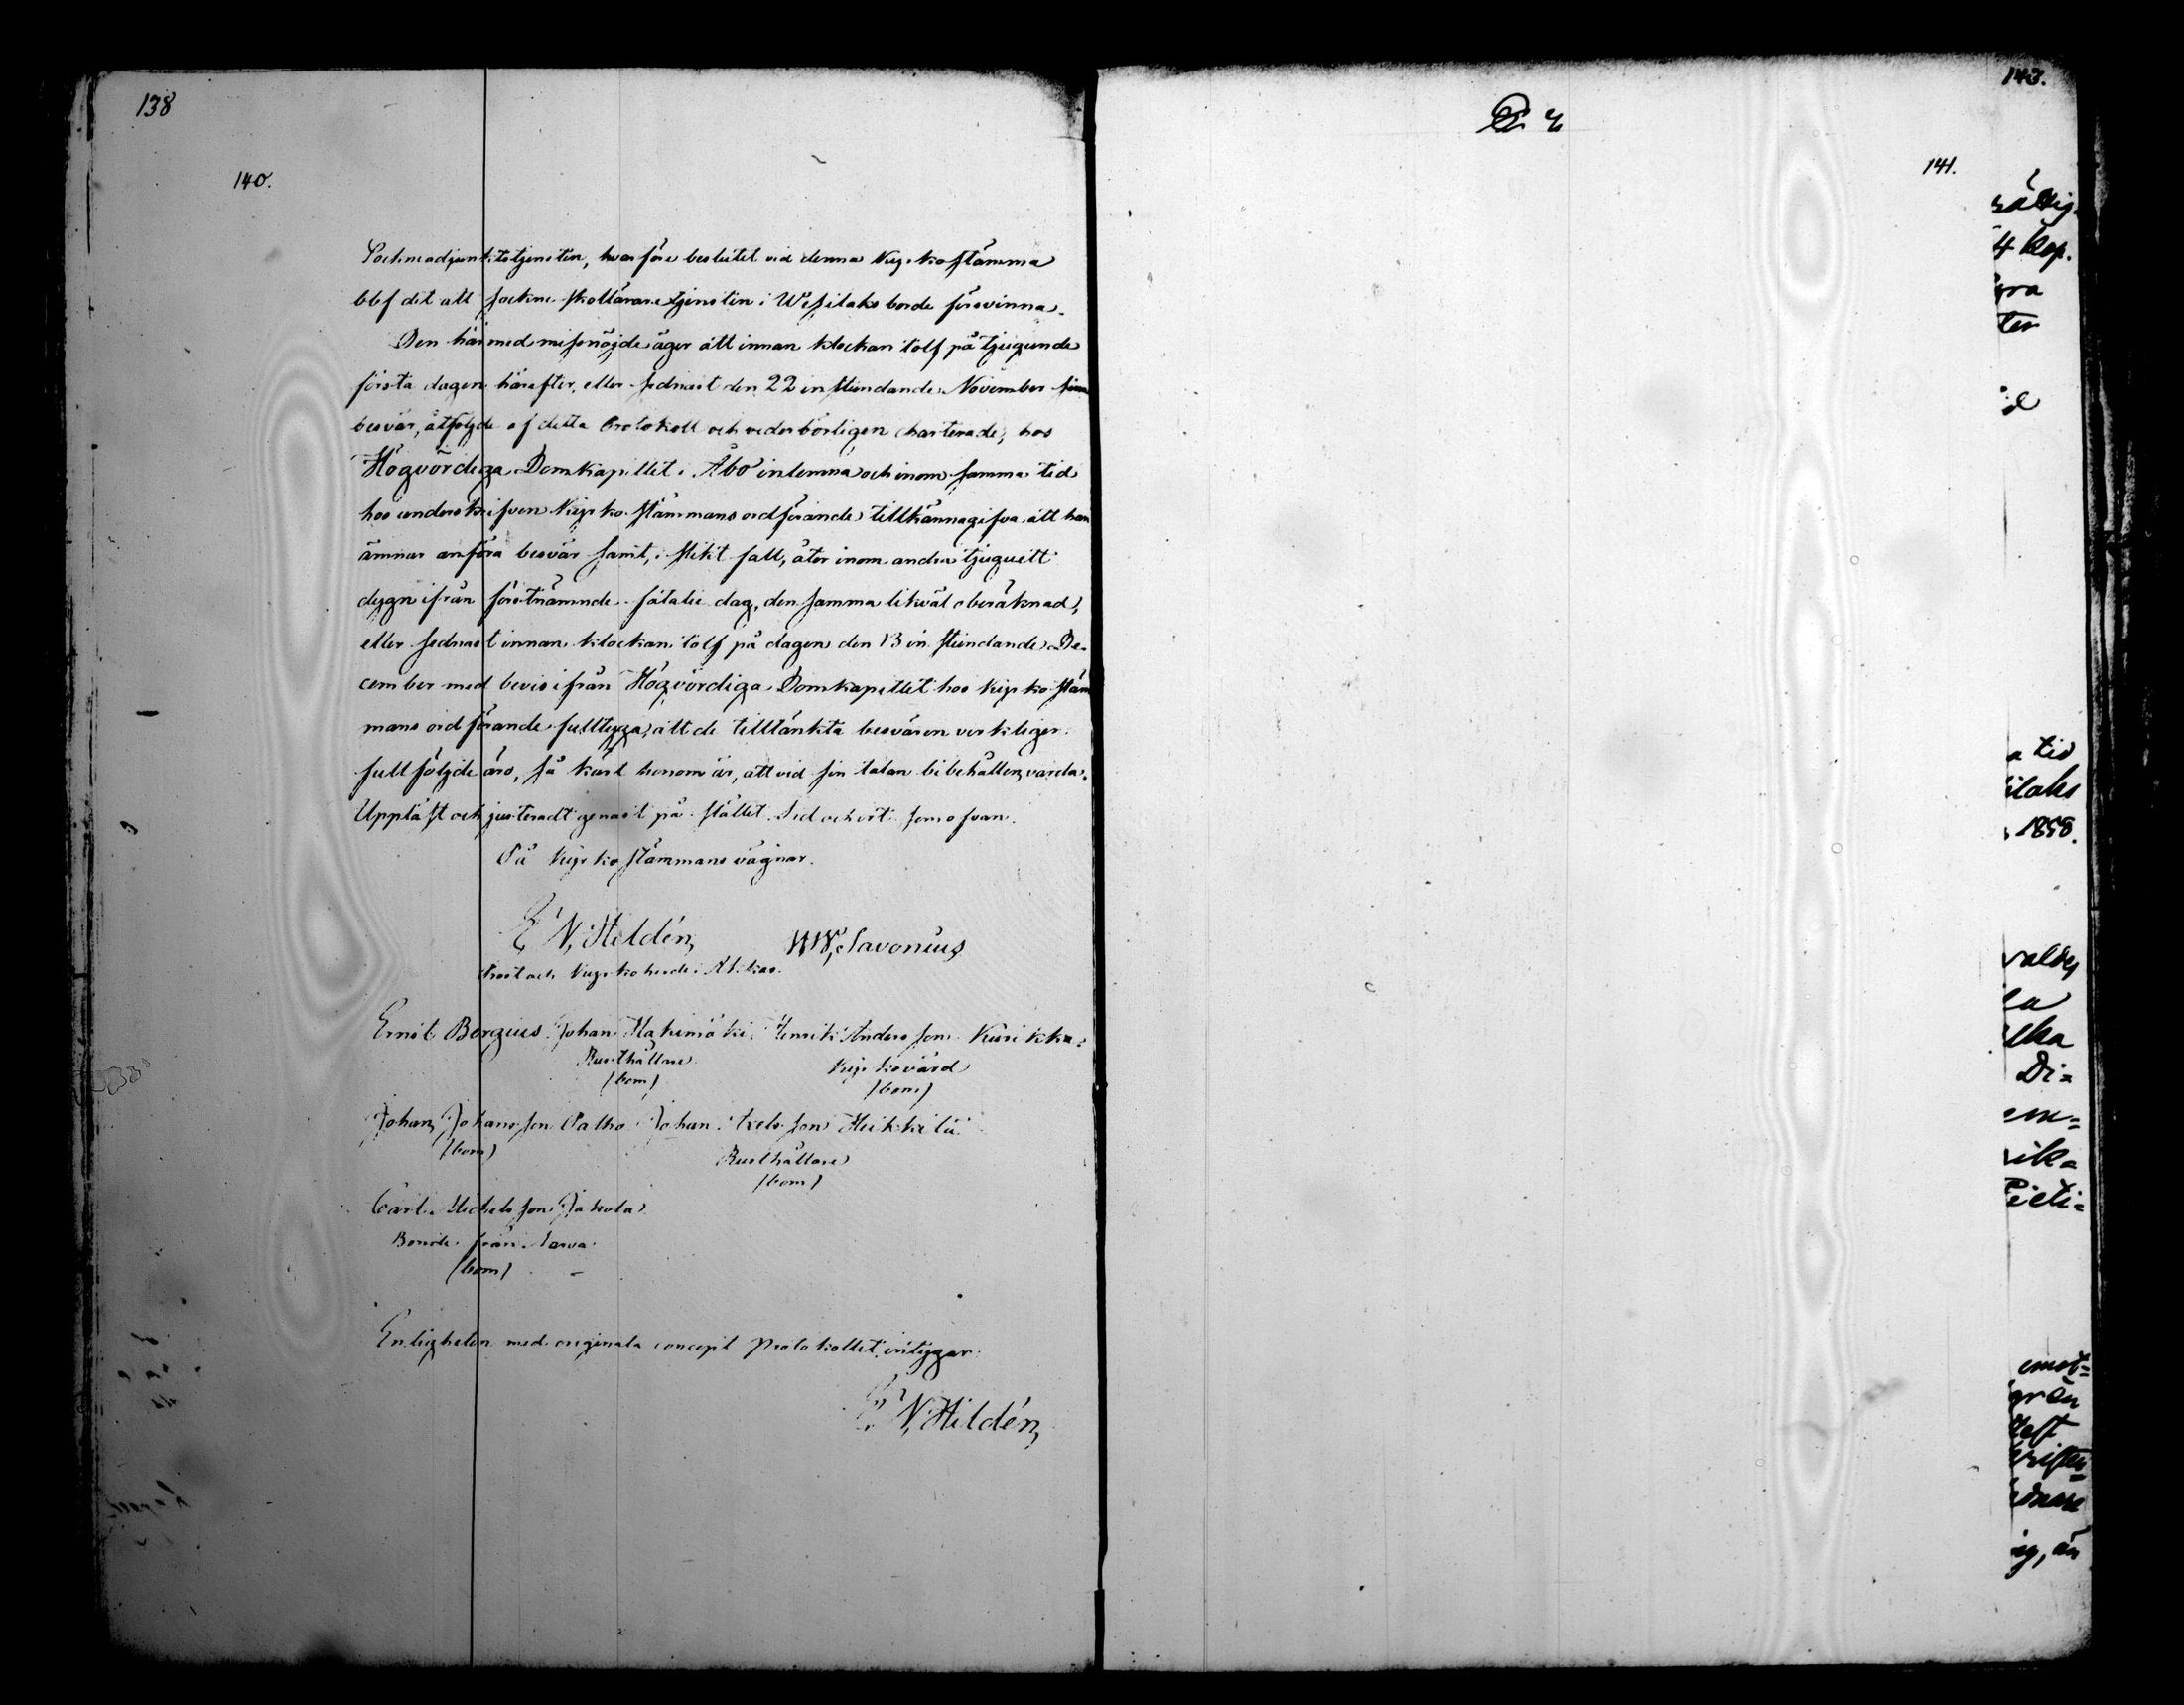 138
140.
Sockneadjunktstjensten, hvarföre beslutet vid denna Kyrkostämma
blef det att sockne skollärare tjensten i Wesilaks borde försvinna.
Den härmed missnöjde äger att innan klockan tolf på tjugunde
första dagen härefter, eller sednast den 22 instundande November sina
besvär, åtföljde af detta Protokoll och vederbörligen charterade, hos
Högvördiga Domkapitlet i Åbo inlemna och inom samma tid
hos underskrifven Kyrkostämmans ordförande tillkännagifva att han
ämnar anföra besvär samt, i slikt fall, åter inom andra tjuguett
dygn ifrån förstnämnde fatalie dag, den samma likväl oberäknad,
eller sednast innan klockan tolf på dagen den 13 instundande De-
cember med bevis ifrån Högvördiga Domkapitlet hos Kyrkostäm
mans ordförande fulltyga, att de tilltänkta besvären verkligen
fullföljde äro, så kärt honom är, att vid sin talan bibehållen varda.
Uppläst och justeradt genast på stället. Tid och ort som ofvan.
På Kyrkostämmans vägnar.
E N, Hildén, W W, Savonius
Prost och Kyrkoherde i Akkas.
Ernst Bergius. Johan Hakimäki. Henrik Andersson Kurikka.
Rusthållare Kyrkovärd
(bom) (bom)
Johan Johansson Palho Johan Axelsson Heikkilä
(bom) Rusthållare
(bom)
Carl Michelsson Jakola
Bonde från Narva
(bom)
Enligheten med originala concept Protokollet intygar:
E. N, Hildén,
143.
141.
4 kop.
gra
ter
a tid
ilaks
, 1858.
valdes
la
lka
Di=
em=
rik=
Pieti=
emot=
grän
ig, än